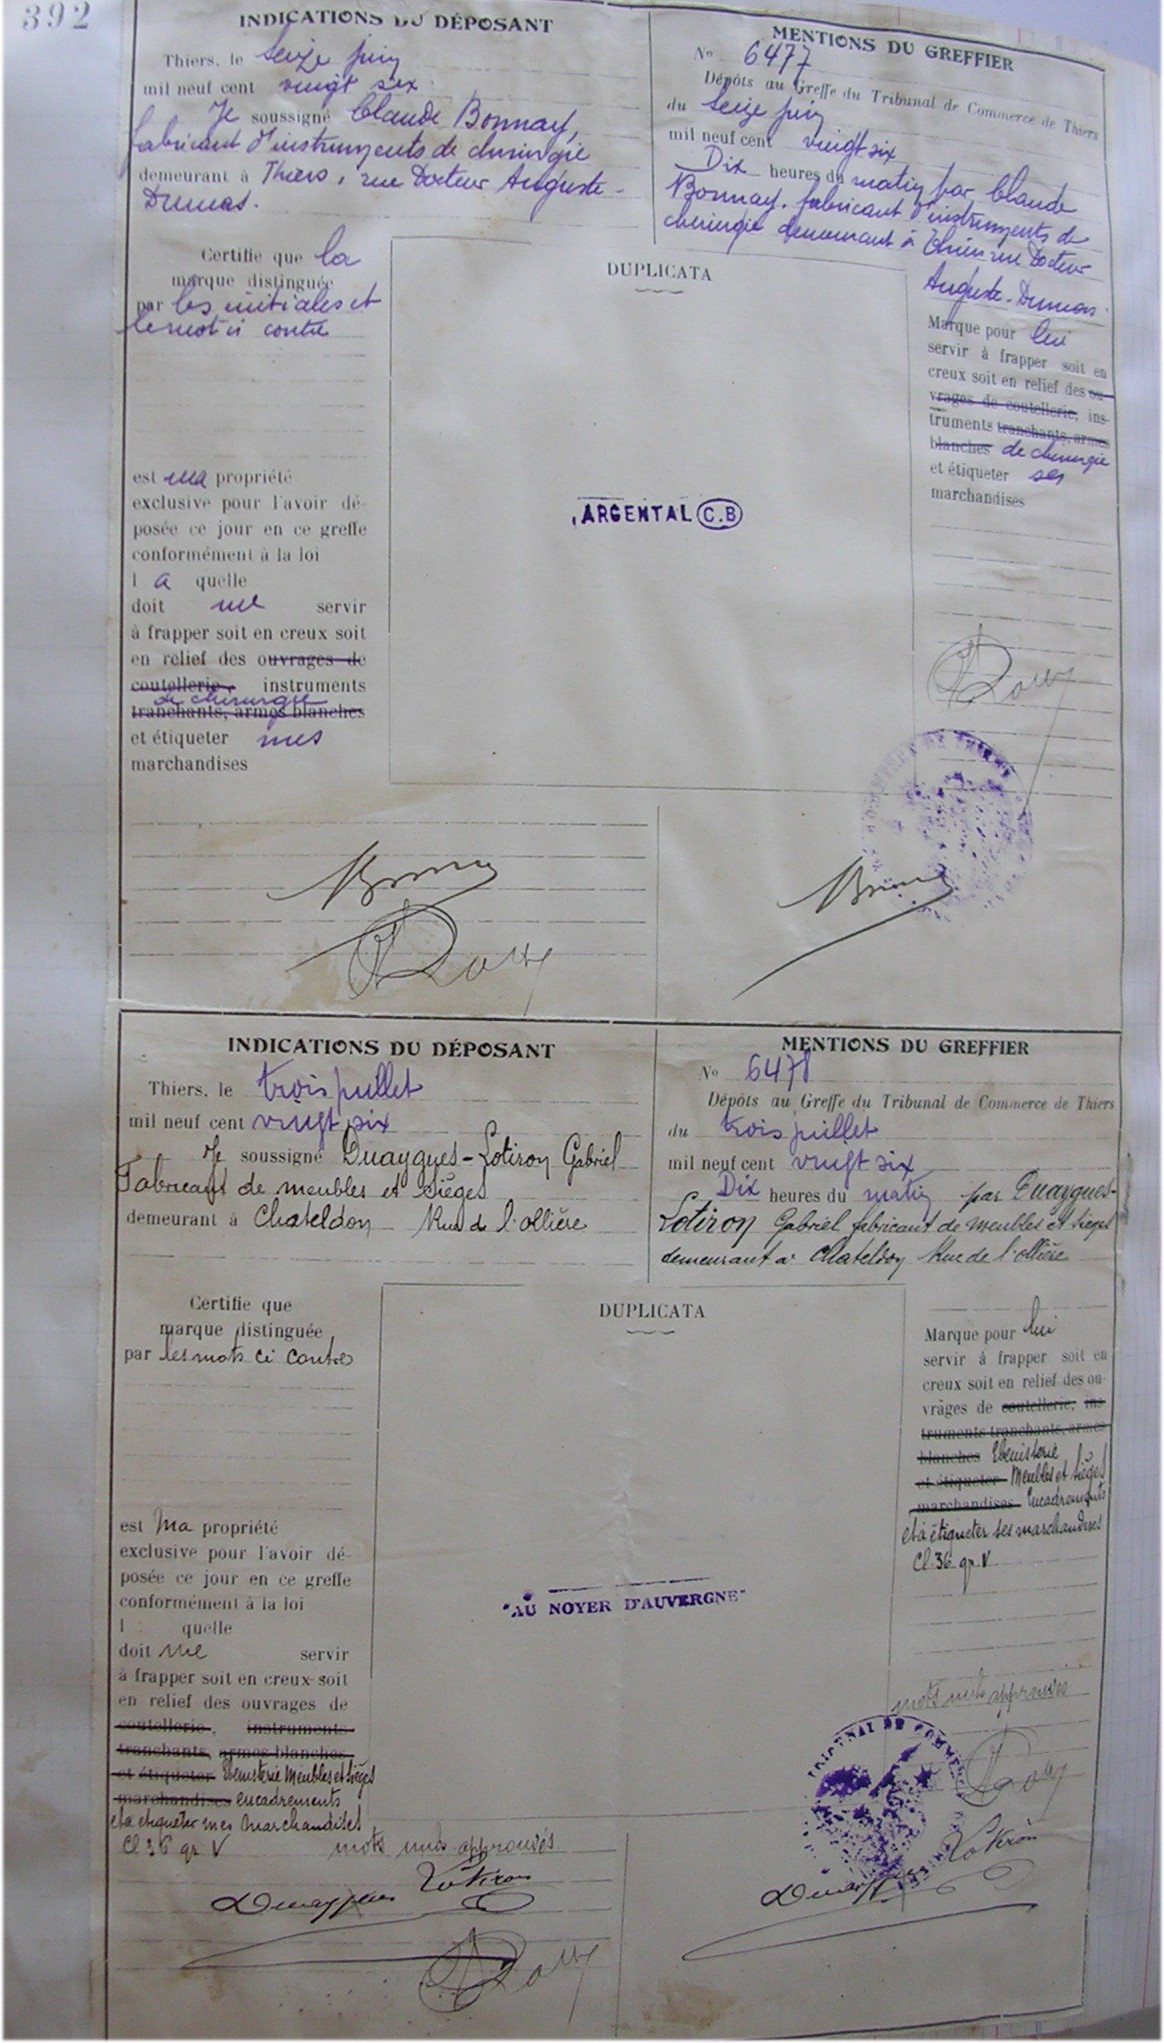 392
INDICATIONS DU DÉPOSANT
Thiers, le Seize juin
mil neuf cent vingt six.
Je soussigné Claude Bonnay,
fabricant d'instruments de chirurgie
demeurant à Thiers, rue Docteur Auguste-
Dumas.
MENTIONS DU GREFFIER
No 6477
Dépôts au Greffe du Tribunal de Commerce de Thiers
du Seize juin
mil neuf cent vingt six
Dix heures du matin par Claude
Bonnay, fabricant d'instruments de
chirurgie demeurant à Thiers rue Docteur
Auguste-Dumas.
Certifie que la
marque distinguée
par les initiales et
le mot ci contre
est ma propriété
exclusive pour l'avoir dé-
posée ce jour en ce greffe
conformément à la loi
l a quelle
doit me servir
à frapper soit en creux soit
en relief des ouvrages de
coutellerie, instruments
de chirurgie
tranchants, armes blanches
et étiqueter mes
marchandises
DUPLICATA
ARGENTAL C.B
Marque pour lui
servir à frapper soit en
creux soit en relief des ou-
vrages de coutellerie, ins-
truments tranchants, armes
blanches de chirurgie
et étiqueter ses
marchandises
INDICATIONS DU DÉPOSANT
Thiers, le trois juillet
mil neuf cent vingt six
Je soussigné Duaygues-Lotiron Gabriel
Fabricant de meubles et Sièges
demeurant à Chateldon Rue de l'ollière
MENTIONS DU GREFFIER
No 6478
Dépôts au Greffe du Tribunal de Commerce de Thiers
du trois juillet
mil neuf cent vingt six
Dix heures du matin par Duaygues-
Lotiron Gabriel fabricant de meubles et sieges
demeurant à Chateldon Rue de l'ollière
Certifie que
marque distinguée
par les mots ci contre
est ma propriété
exclusive pour l'avoir dé-
posée ce jour en ce greffe
conformément à la loi
l quelle
doit me servir
à frapper soit en creux soit
en relief des ouvrages de
coutellerie, instruments
tranchants, armes blanches
et étiqueter Ebenisterie Meubles et Sièges
marchandises encadrements
et à etiqueter mes marchandises
Cl 36 gr V mots nuls approuvés
DUPLICATA
"AU NOYER D'AUVERGNE"
Marque pour lui
servir à frapper soit en
creux soit en relief des ou-
vrages de coutellerie, ins-
truments tranchants, armes
blanches Ebenisterie
et étiqueter Meubles et sièges
marchandises Encadrements
et à étiqueter ses marchandises
Cl 36 gr V
mots nuls approuvés
Duaygues Lotiron
Duaygues Lotiron